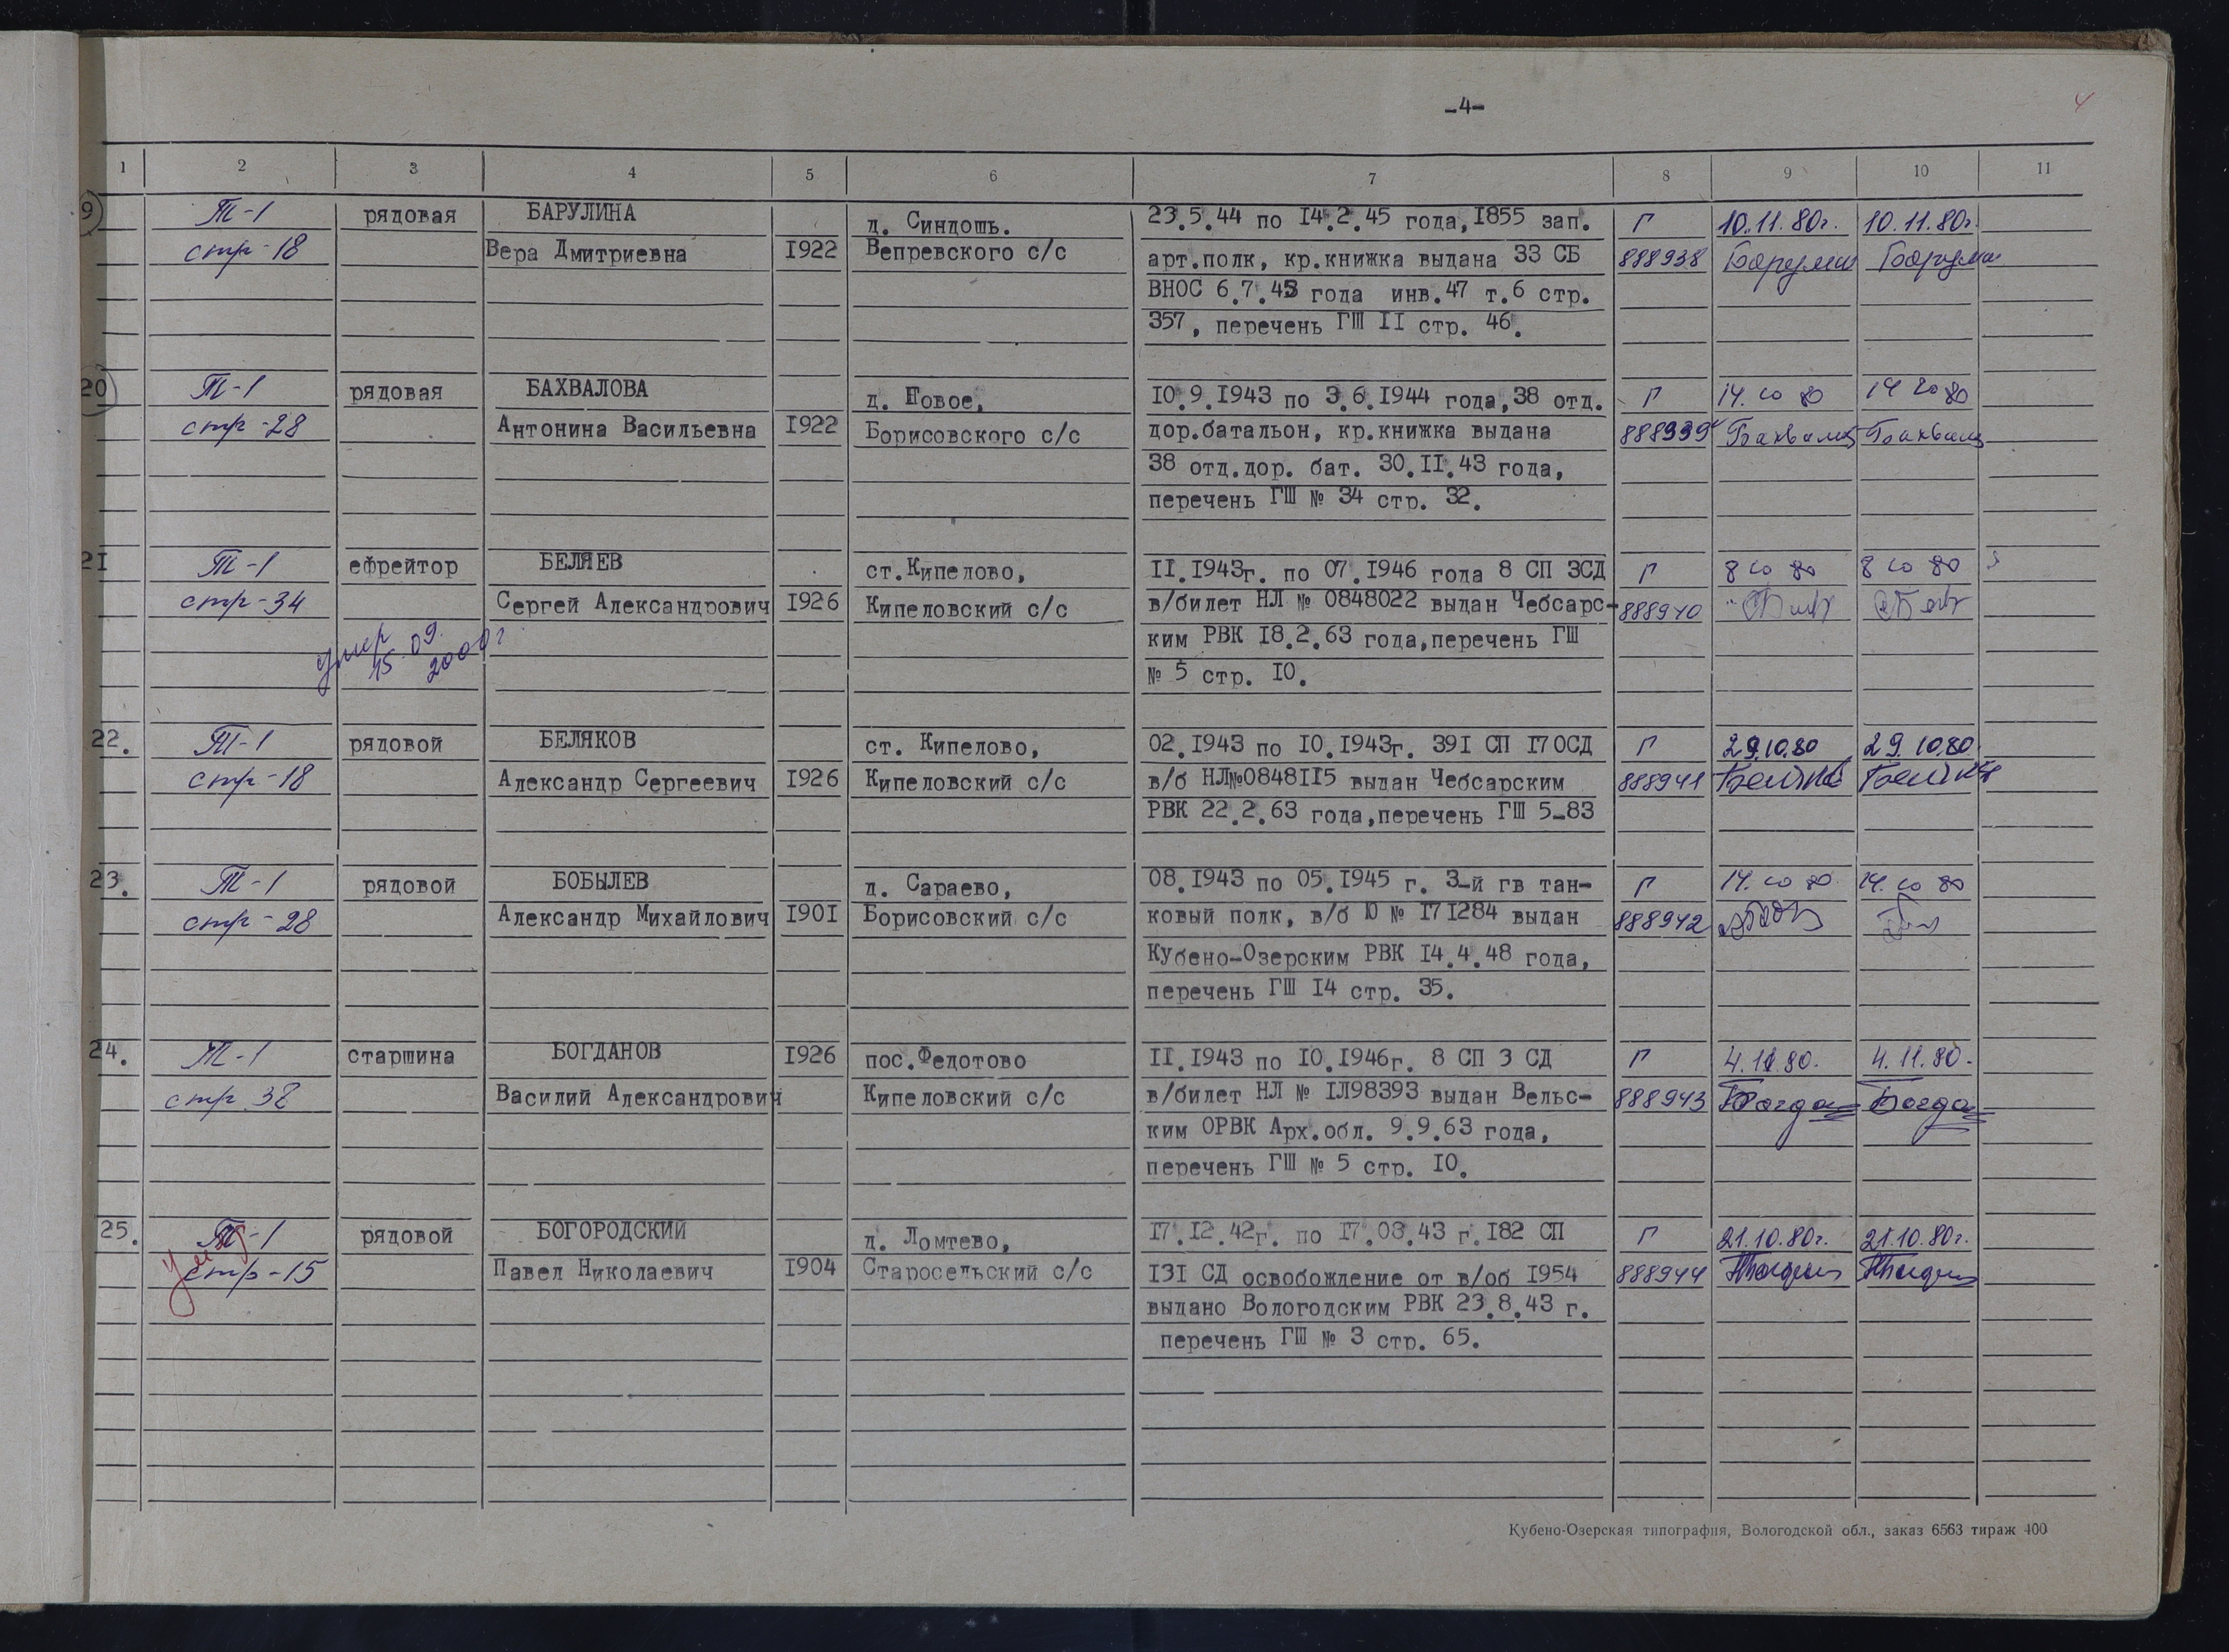 -4-
4
1 2 3 4 5 6 7 8 9 10 11
9 Т-1 рядовая БАРУЛИНА д. Синдошь. 23.5.44 по I4.2.45 года,I855 зап. Г 10.11.80г. 10.11.80г.
стр-18 Вера Дмитриевна I922 Вепревского с/с арт.полк, кр.книжка выдана 33 СБ 888938
ВНОС 6.7.45 года инв.47 т.6 стр.
357, перечень ГШ II стр. 46.
20 Т-1 рядовая БАХВАЛОВА д. Новое, I0.9.I943 по 3.6.I944 года,38 отд. Г 14.10 80 14 10 80
стр-28 Антонина Васильевна I922 Борисовского с/с дор.батальон, кр.книжка выдана 888939
38 отд.дор. бат. 30.II.43 года,
перечень ГШ № 34 стр. 32.
2I Т-1 ефрейтор БЕЛЯЕВ ст.Кипелово, II.I943г. по 07.I946 года 8 СП 3СД Г 8 10 80 8 10 80
стр-34 Сергей Александрович I926 Кипеловский с/с в/билет НЛ № 0848022 выдан Чебсарс- 888940
умер 15.09. 2000г ким РВК I8.2.63 года,перечень ГШ
№ 5 стр. I0.
22. Т-1 рядовой БЕЛЯКОВ ст. Кипелово, 02.I943 по I0.I943г. 39I СП I70СД Г 29.10.80 29.10.80
стр-18 Александр Сергеевич I926 Кипеловский с/с в/б НЛ№0848II5 выдан Чебсарским 888941
РВК 22.2.63 года,перечень ГШ 5-83
23. Т-1 рядовой БОБЫЛЕВ д. Сараево, 08.I943 по 05.I945 г. 3-й гв тан- Г 14.10 80. 14.10 80
стр-28 Александр Михайлович I90I Борисовский с/с ковый полк, в/б Ю № I7I284 выдан 888942
Кубено-Озерским РВК I4.4.48 года,
перечень ГШ I4 стр. 35.
24. Т-1 старшина БОГДАНОВ I926 пос.Федотово II.I943 по I0.I946г. 8 СП 3 СД Г 4.11.80. 4.11.80.
стр 38 Василий Александрович Кипеловский с/с в/билет НЛ № IЛ98393 выдан Вельс- 888943
ким ОРВК Арх.обл. 9.9.63 года,
перечень ГШ № 5 стр. I0.
25. Т-1 рядовой БОГОРОДСКИЙ д. Ломтево, I7.I2.42г. по I7.03.43 г.I82 СП Г 21.10.80г. 21.10.80г.
стр-15 Павел Николаевич I904 Старосельский с/с I3I СД освобождение от в/об I954 888944
выдано Вологодским РВК 23.8.43 г.
перечень ГШ № 3 стр. 65.
Кубено-Озерская типография, Вологодской обл., заказ 6563 тираж 400